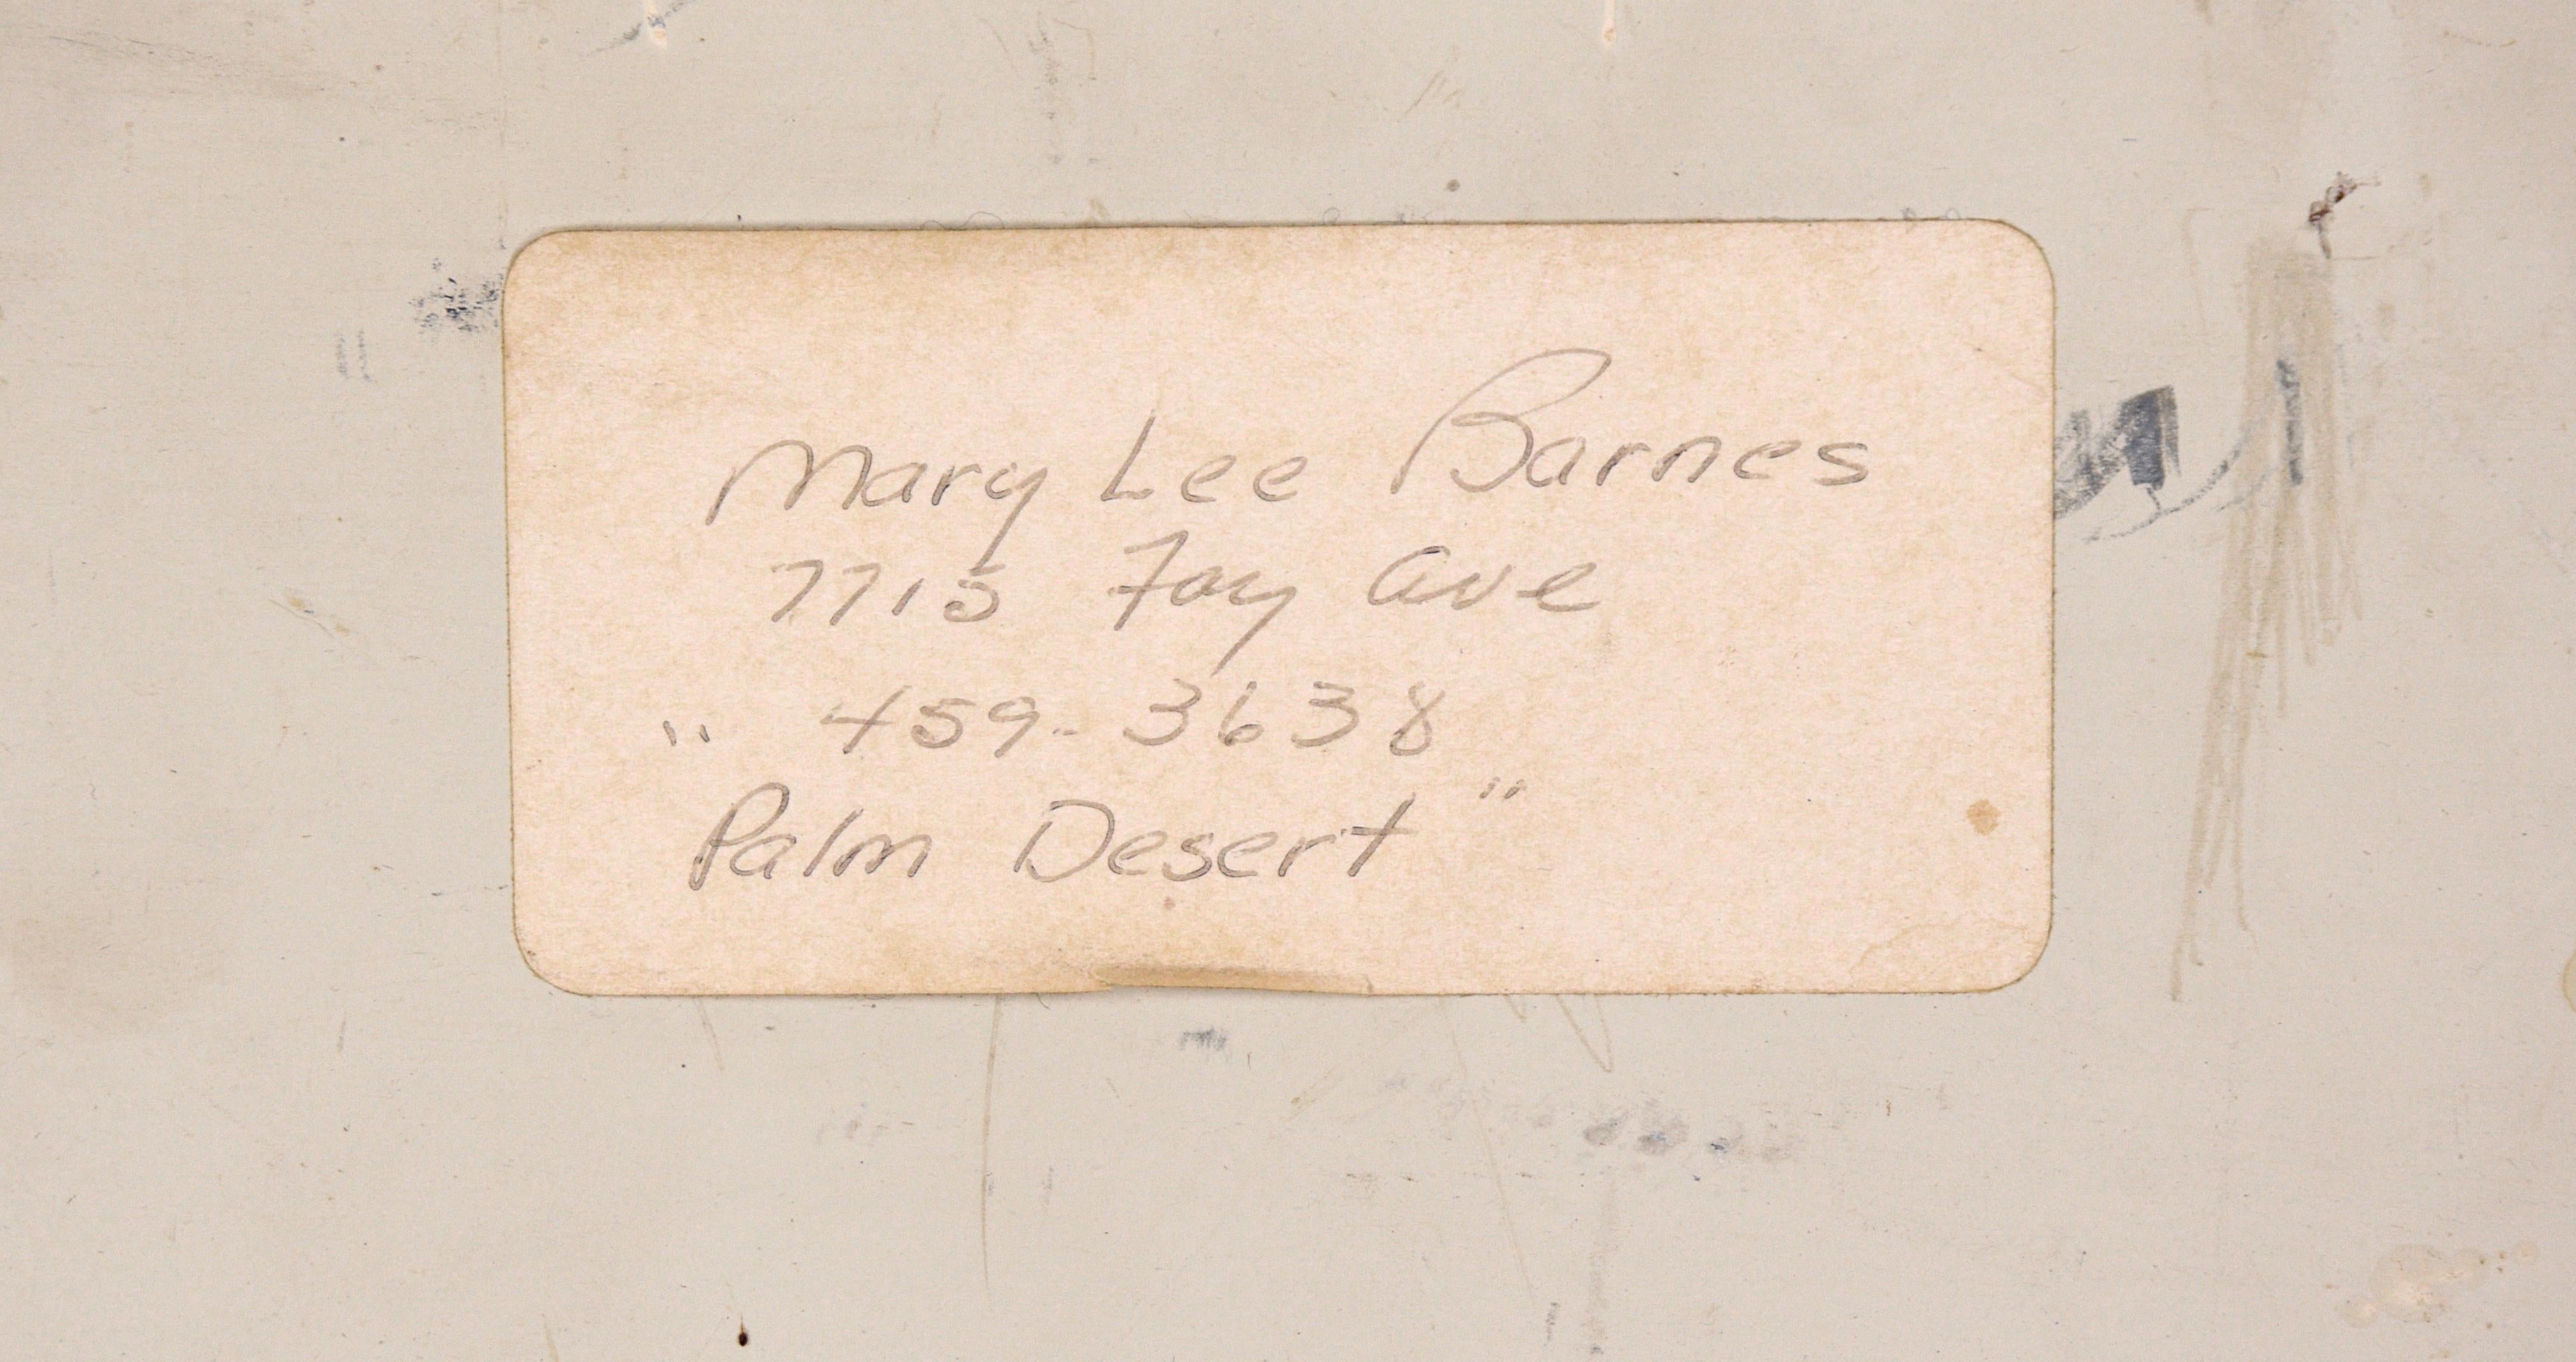 Mary Lee Barnes
7715 Fay Ave
" 459-3638
Palm Desert "